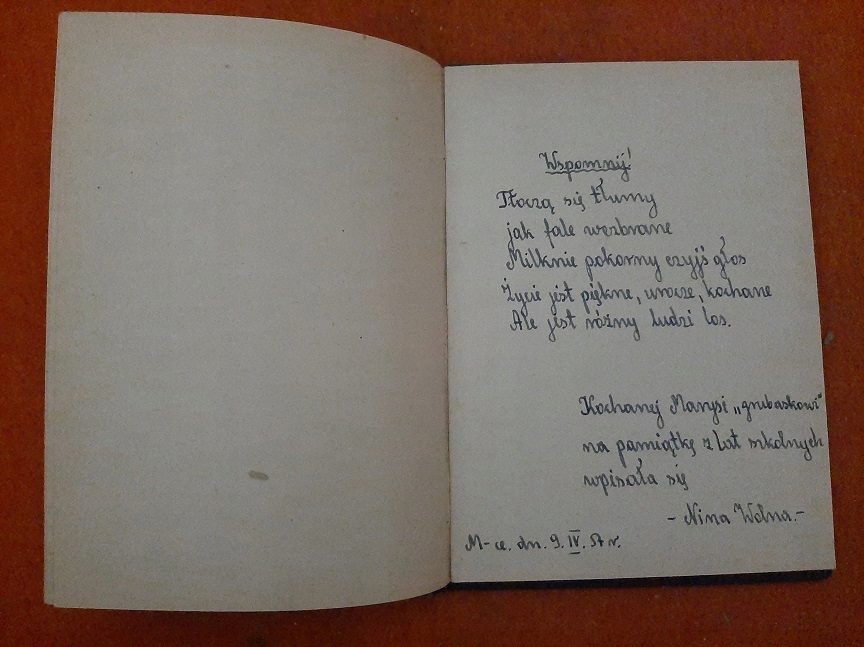 Wspomnij!
Tłoczą się tłumy
jak fale wezbrane
Milknie pokorny czyjś głos
Życie jest piękne, urocze, kochane
Ale jest różny ludzi los.
Kochanej Marysi „grubaskowi”
na pamiątkę z lat szkolnych
wpisała się
- Nina Wolna.-
M-ce. dn. 9. IV. 57 r.